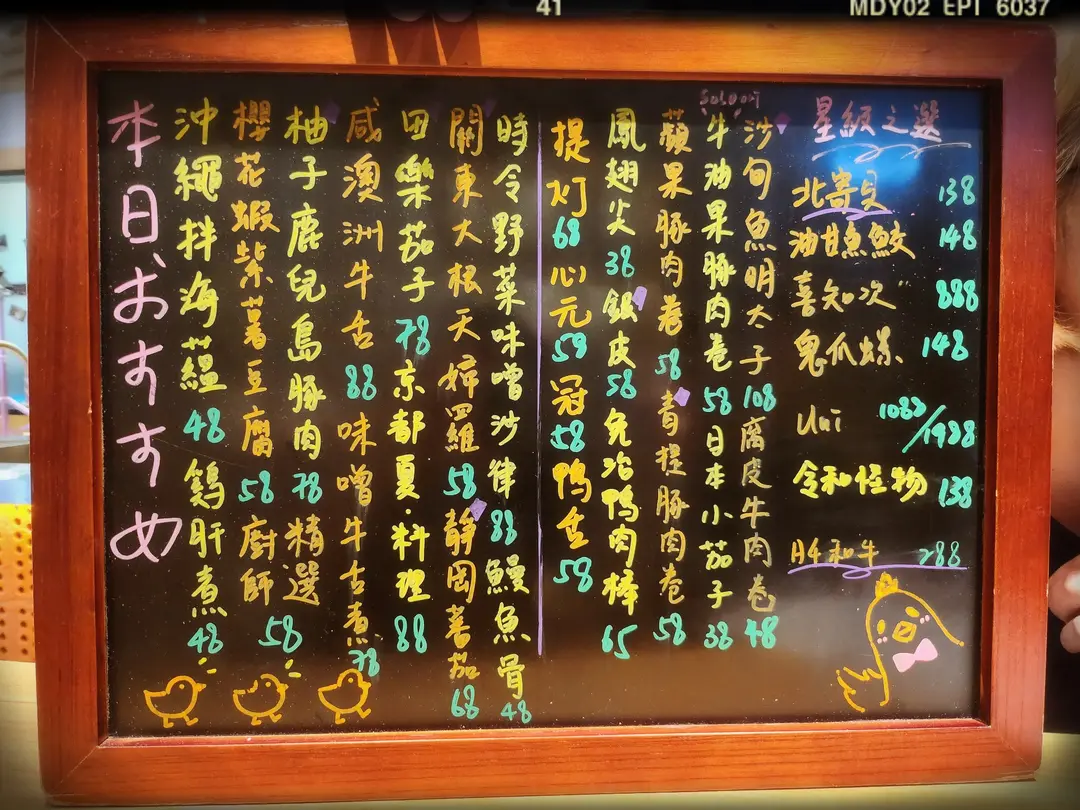 41
MDY02 EPI 6037
本日おすすめ
沖繩拌海蘊 48 鷄肝煮 48
櫻花蝦紫薯豆腐 58 廚師
柚子鹿兒島豚肉 78 精選 58
咸澳洲牛舌 88 味噌牛舌煮 78
田樂茄子 78 京都夏·料理 88
關東大根天婦羅 58 靜岡蕃茄 68
時令野菜味噌沙律 88 鰻魚骨 48
提灯 68 心元 59 冠 58 鴨舌 58
鳳翅尖 38 銀皮 58 免治鴨肉棒 65
蘋果豚肉卷 58 青提豚肉卷 58
牛油果豚肉卷 58 日本小茄子 38
沙甸魚明太子 108 腐皮牛肉卷 48
星級之選
北寄貝 138
油甘魚鮫 148
喜知次 888
鬼爪螺 148
Uni
令和怪物 138
和牛 288